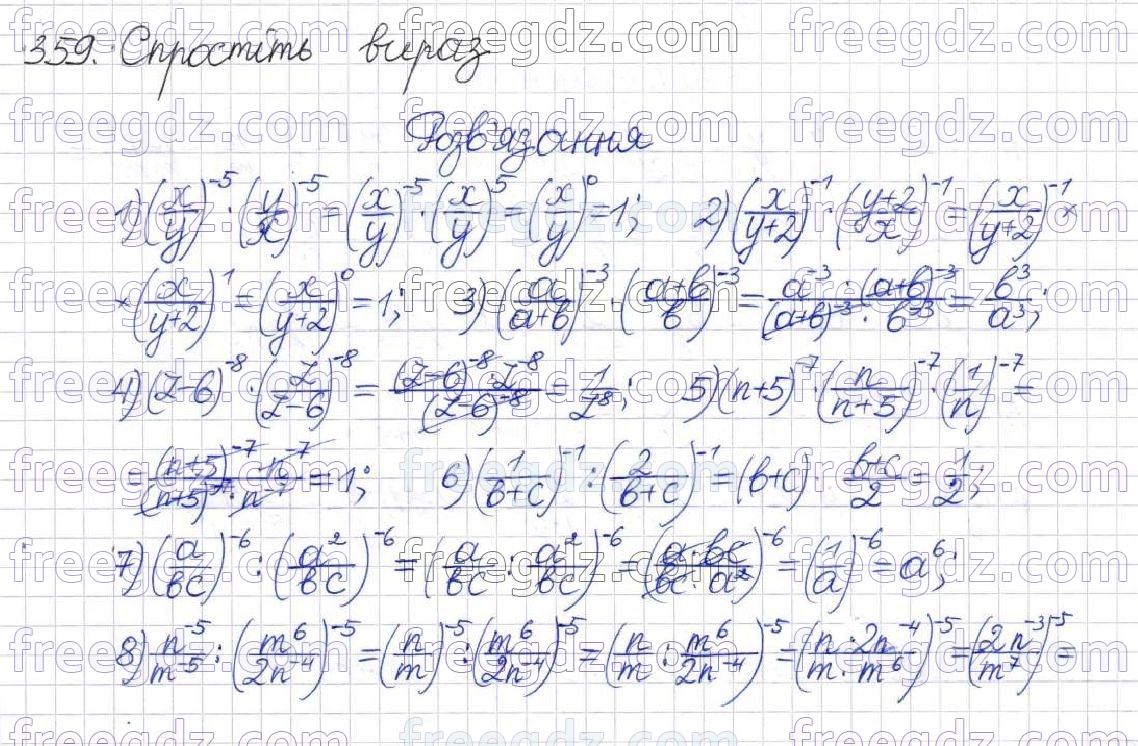 359. Спростіть вираз
Розв'язання
1) (x/y)^-5 · (y/x)^-5 = (x/y)^-5 · (x/y)^5 = (x/y)^0 = 1; 2) (x/(y+2))^-1 · ((y+2)/x)^-1 = (x/(y+2))^-1 ×
× (x/(y+2))^1 = (x/(y+2))^0 = 1; 3) (a/(a+b))^-3 · ((a+b)/b)^-3 = (a^-3 · (a+b)^-3)/((a+b)^-3 · b^-3) = b^3/a^3;
4) (z-6)^-8 · (z/(z-6))^-8 = ((z-6)^-8 · z^-8)/(z-6)^-8 = 1/z^8; 5) (n+5)^-7 · (n/(n+5))^-7 · (1/n)^-7 =
= ((n+5)^-7 · n^-7)/((n+5)^-7 · n^-7) = 1; 6) (1/(b+c))^-1 : (2/(b+c))^-1 = (b+c) · (b+c)/2 = 1/2;
7) (a/bc)^-6 : (a^2/bc)^-6 = (a/bc : a^2/bc)^-6 = (a·bc/bc·a^2)^-6 = (1/a)^-6 = a^6;
8) n^-5/m^-5 : (m^6/2n^-4)^-5 = (n/m)^-5 : (m^6/2n^-4)^-5 = (n/m : m^6/2n^-4)^-5 = (n·2n^-4/m·m^6)^-5 = (2n^-3/m^7)^-5 =
freegdz.com